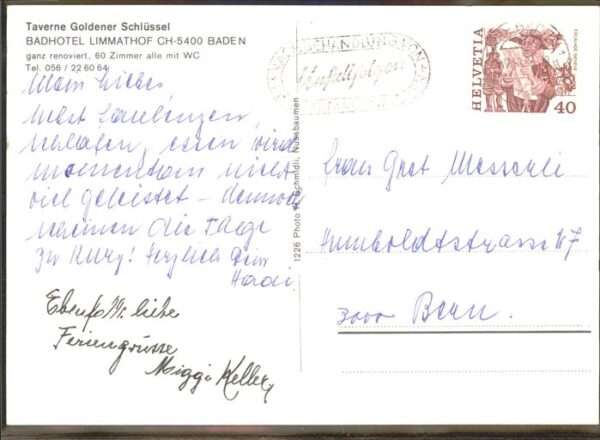 Taverne Goldener Schlüssel
BADHOTEL LIMMATHOF CH-5400 BADEN
ganz renoviert, 60 Zimmer alle mit WC
Tel. 056 / 22 60 64
Mein Lieber,
schlafen, essen wird
momentan nicht
viel geleistet - dennoch
scheinen die Tage
zu kurz! Herzlich Dein
Heidi
Ebenfalls liebe
Feriengrüsse
Miggi Keller
1226 Photo H. Schmidli, Nussbaumen
BEHANDLUNG VON
Unfallfolgen
HELVETIA
40
Frau Gret Messerli
Humboldtstrasse 47
3000 Bern